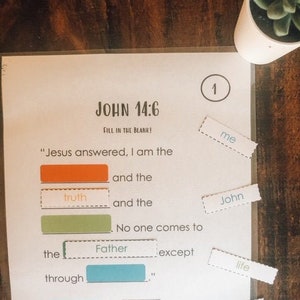 JOHN 14:6
FILL IN THE BLANK!
1
"Jesus answered, I am the
and the
truth and the
. No one comes to
the Father except
through ."
me
John
life